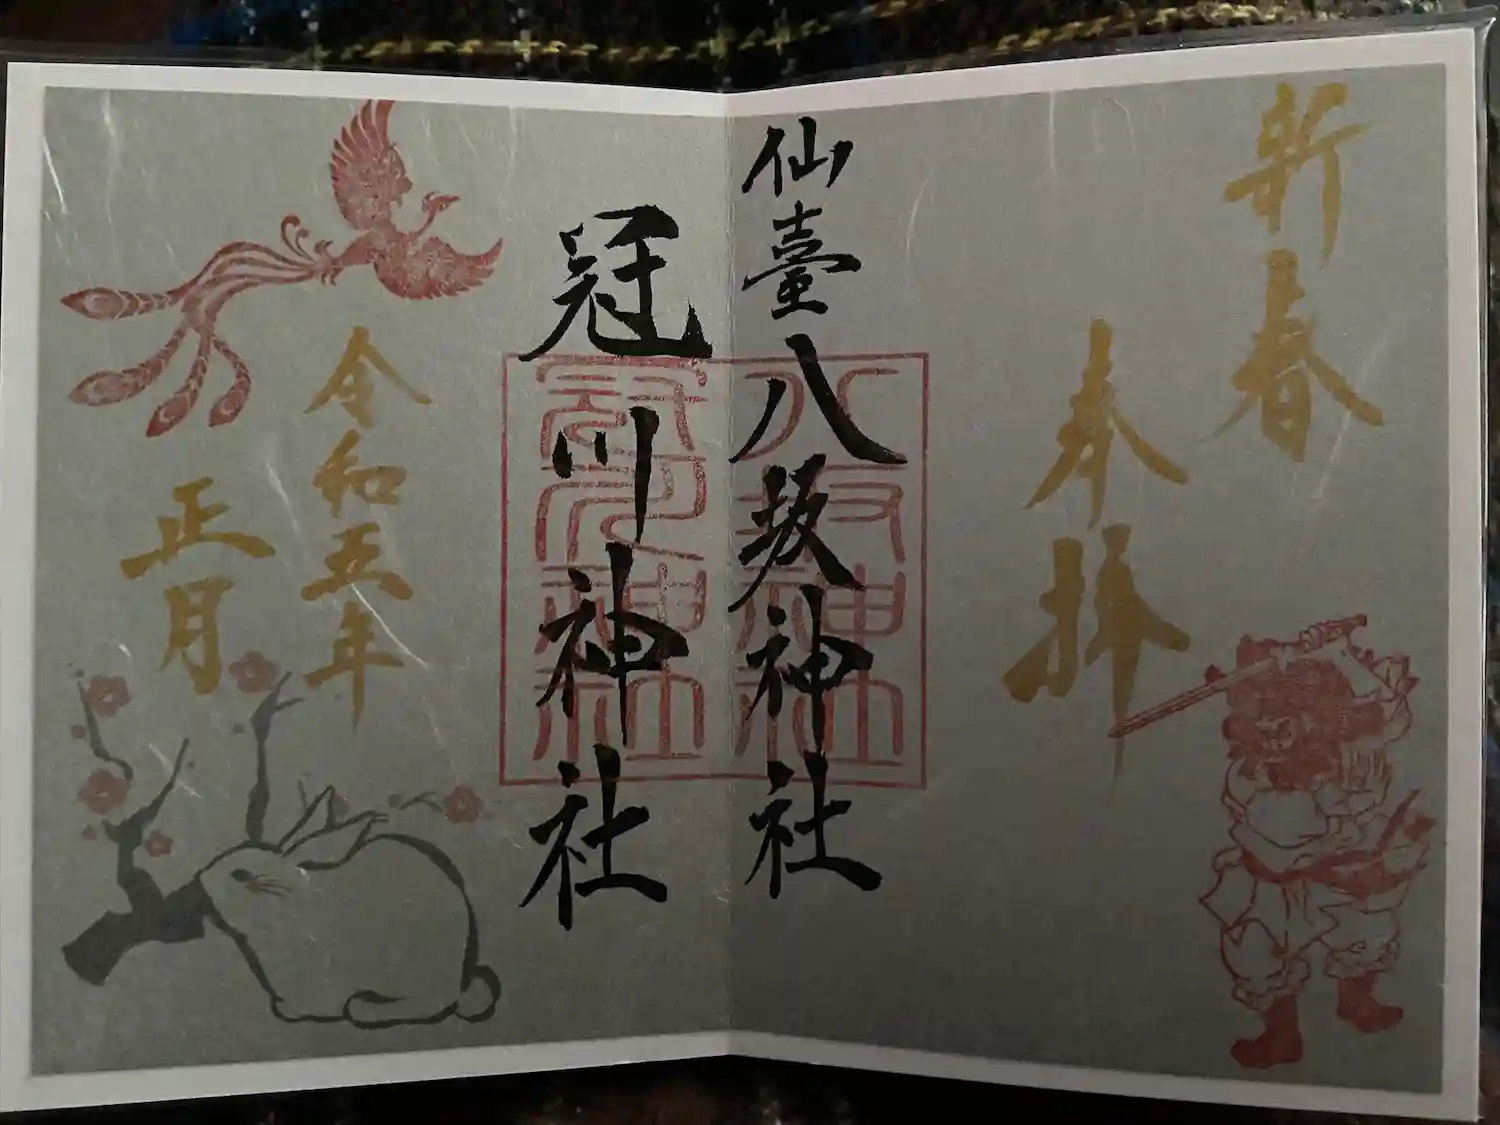 新春
奉拝
仙臺八坂神社
冠川神社
令和五年
正月
八坂神社
冠川神社